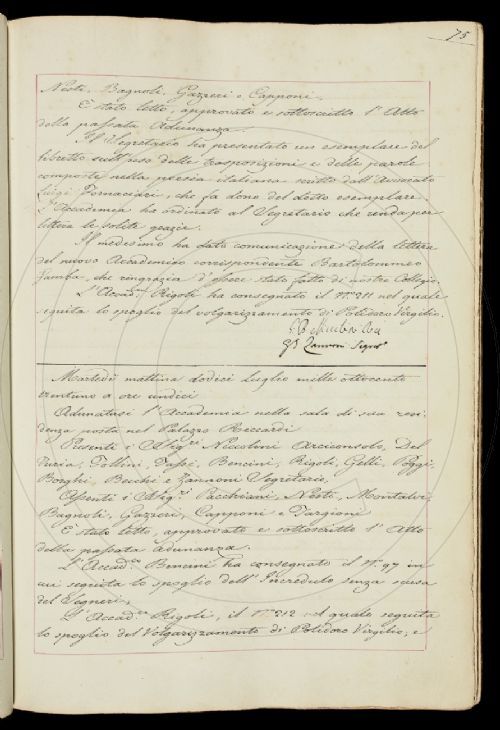 75
Nesti, Bagnoli, Gazzeri e Capponi.
È stato letto, approvato e sottoscritto l'Atto
della passata Adunanza.
Il Segretario ha presentato un esemplare del
libretto sull'uso delle trasposizioni e delle parole
composte nella poesia italiana scritto dall'Avvocato
Luigi Fornaciari, che fa dono del detto esemplare.
L'Accademia ha ordinato al Segretario che renda per
lettera le solite grazie.
Il medesimo ha fatto comunicazione della lettera
del nuovo Accademico corrispondente Bartolommeo
Gamba, che ringrazia d'essere stato fatto di nostro Collegio.
L'Accad.co Rigoli ha consegnato il N.º 211 nel quale
seguita lo spoglio del volgarizzamento di Polidoro Virgilio.
Zannoni Segret.º
Martedì mattina dodici Luglio mille ottocento
trentuno a ore undici
Adunatasi l'Accademia nella sala di sua resi-
denza posta nel Palazzo Riccardi
Presenti i Sig.ri Niccolini Arciconsolo, Del
Furia, Follini, Tassi, Bencini, Rigoli, Gelli, Poggi,
Borghi, Becchi e Zannoni Segretario,
Assenti i Sig.ri Pacchiani, Nesti, Montalvi,
Bagnoli, Gazzeri, Capponi e Targioni
È stato letto, approvato e sottoscritto l'Atto
della passata Adunanza.
L'Accad.co Bencini ha consegnato il N.º 97 in
cui seguita lo spoglio dell'Incredulo senza scusa
del Segneri;
L'Accad.co Rigoli, il N.º 212 nel quale seguita
lo spoglio del Volgarizzamento di Polidoro Virgilio; e